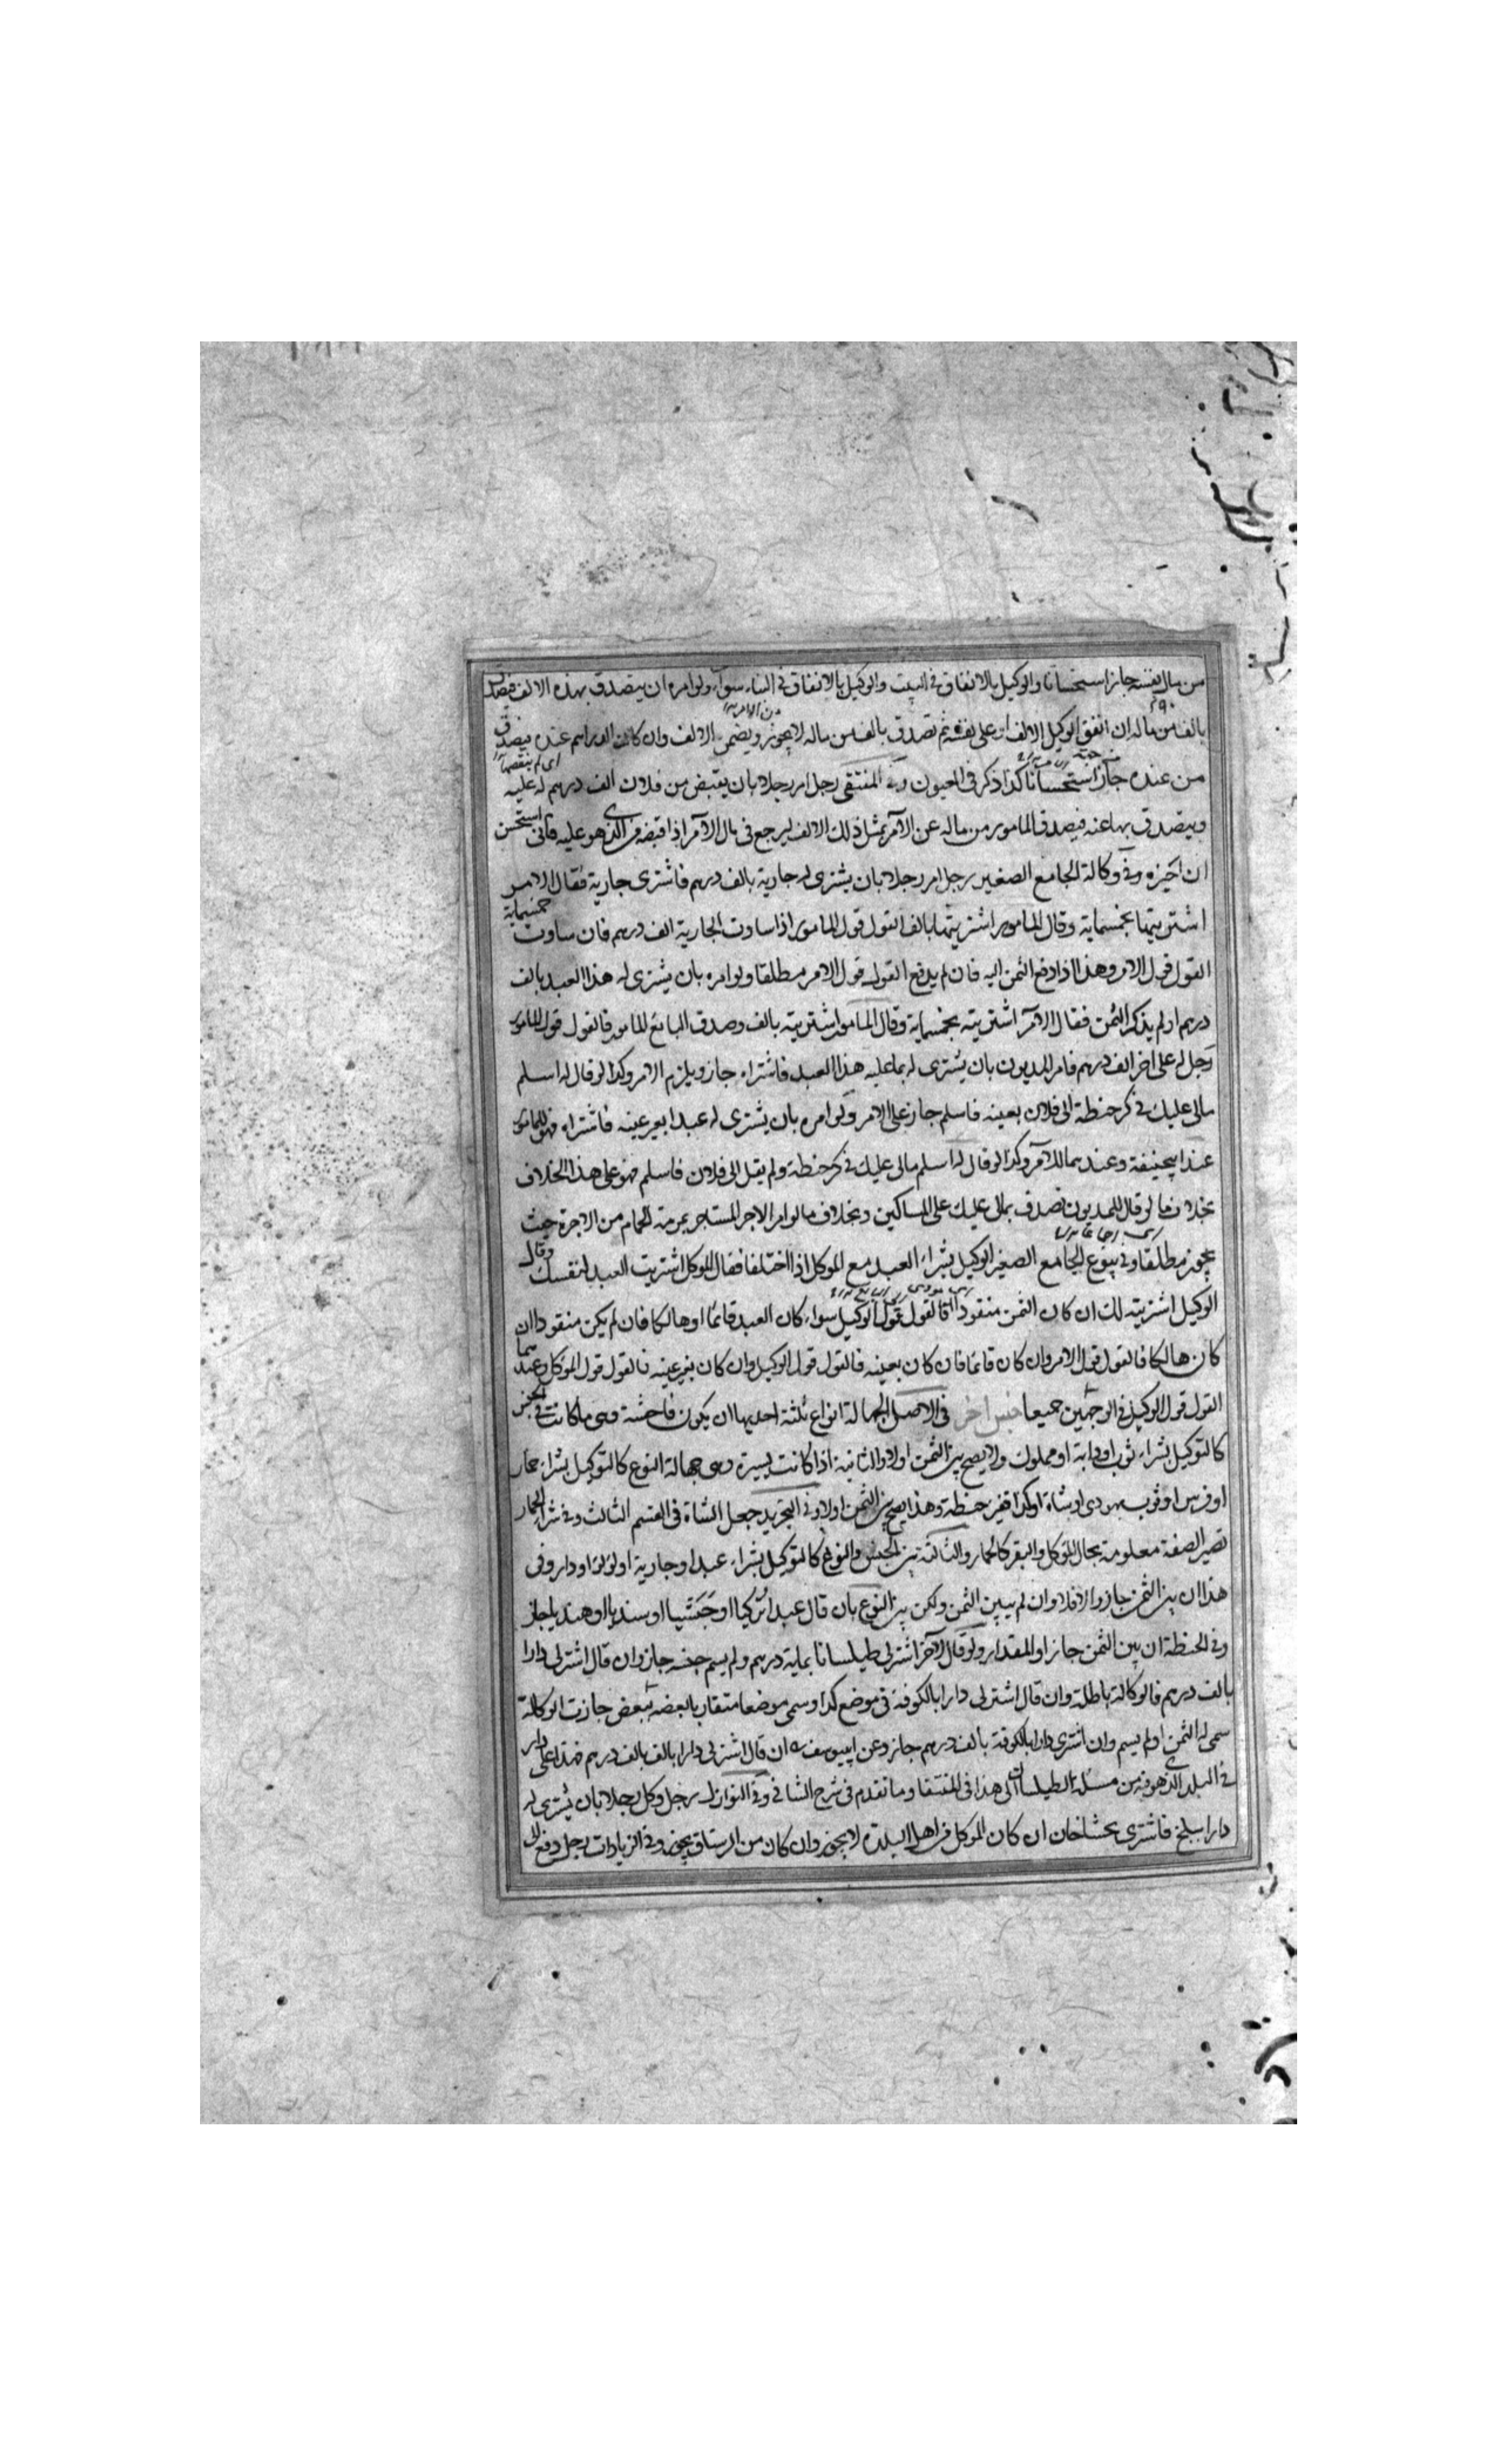 من مال نفسه جاز استحسانا والوكيل بالانفاق في البيت والوكيل بالانفاق في البناء سواء ولو امره ان يتصدق بهذه الالف فيصدق
بالف من ماله ان انفق الوكيل الالف على نفسه ثم تصدق بالف من ماله لا يجوز ويضمن الالف وان كانت الدراهم عنده فيصدق
من عنده جاز استحسانا كذا ذكر في العيون وفي المنتقى رجل امر رجلا بان يقبض من فلان الف درهم له عليه
ويتصدق بها عنه فيصدق المامور من ماله عن الآمر بمثل ذلك الالف ليرجع في مال الآمر اذا قبضه من الذي هو عليه فاني استحسن
ان اجيزه وفي وكالة الجامع الصغير رجل امر رجلا بان يشترى له جارية بالف درهم فاشترى جارية فقال الامر
اشتريتها بخمسماية وقال المامور اشتريتها بالف القول قول المامور اذا ساوت الجارية الف درهم فان ساوت خمسماية
القول قول الامر وهذا اذا دفع الثمن اليه فان لم يدفع القول قول الامر مطلقا ولو امره بان يشترى له هذا العبد بالف
درهم او لم يذكر الثمن فقال الآمر اشتريته بخمسماية وقال المامور اشتريته بالف وصدق البائع المامور فالقول قول المامور
رجل له على اخر الف درهم فامر المديون بان يشترى له بما عليه هذا العبد فاشتراه جاز ويلزم الامر وكذا لو قال له اسلم
مالى عليك في كر حنطة الى فلان بعينه فاسلم جاز على الامر ولو امره بان يشترى له عبدا بغير عينه فاشتراه فهو للمامور
عند ابيحنيفة وعندهما للآمر وكذا لو قال له اسلم مالى عليك في كر حنطة ولم يقل الى فلان فاسلم فهو على هذا الخلاف
بخلاف ما لو قال للمديون تصدق بمالى عليك على المساكين وبخلاف ما لو امر الاجر المستاجر بمرمة الحمام من الاجرة حيث
يجوز مطلقا وفي بيوع الجامع الصغير الوكيل بشراء العبد مع الموكل اذا اختلفا فقال الموكل اشتريت العبد لنفسك وقال
الوكيل اشتريته لك ان كان الثمن منقودا فالقول قول الوكيل سواء كان العبد قائما او هالكا فان لم يكن منقودا ان
كان هالكا فالقول قول الامر وان كان قائما فان كان بعينه فالقول قول الوكيل وان كان بغير عينه فالقول قول الموكل وعندهما
القول قول الوكيل في الوجهين جميعا جنس اخر في الاصل الجهالة انواع ثلثة احديها ان يكون فاحشة وهى ما كانت في الجنس
كالتوكيل بشراء ثوب او دابة او مملوك ولا يصح بين الثمن اولا والثانية اذا كانت يسيرة وهى جهالة النوع كالتوكيل بشراء حمار
او فرس او ثوب يهودى او شاة او كذا قفيز حنطة وهذا يصح بين الثمن اولا وفي التجريد جعل الشاة في القسم الثالث وفي شراء الحمار
تصير الصفة معلومة بحال الموكل والبقر كالحمار والثالثة بين الجنس والنوع كالتوكيل بشراء عبد او جارية او لؤلؤ او دار وفى
هذا ان بين الثمن جاز والا فلا وان لم يبين الثمن ولكن بين النوع بان قال عبدا تركيا او حبشيا او سنديا او هنديا جاز
وفي الحنطة ان بين الثمن جاز او المقدار ولو قال لآخر اشتر لى طيلسانا بماية درهم ولم يسم جنسه جاز وان قال اشتر لى دارا
بالف درهم فالوكالة باطلة وان قال اشتر لى دارا بالكوفة في موضع كذا وسمى موضعا متقاربا بعضه ببعض جازت الوكالة
سمى له الثمن او لم يسم وان اشترى دارا بالكوفة بالف درهم جاز وعن ابييوسف ان قال اشتر لى دارا بالف درهم فهذا على دار
في البلد الذى هو فيه من مسئلة الطيلسان الى هذا في المنتقا وما تقدم في شرح الشافي وفي النوازل رجل وكل رجلا بان يشترى له
دارا ببلخ فاشترى بخشلخان ان كان الموكل من اهل البلدة لا يجوز وان كان من الرستاق يجوز وفي الزيادات رجل دفع الى